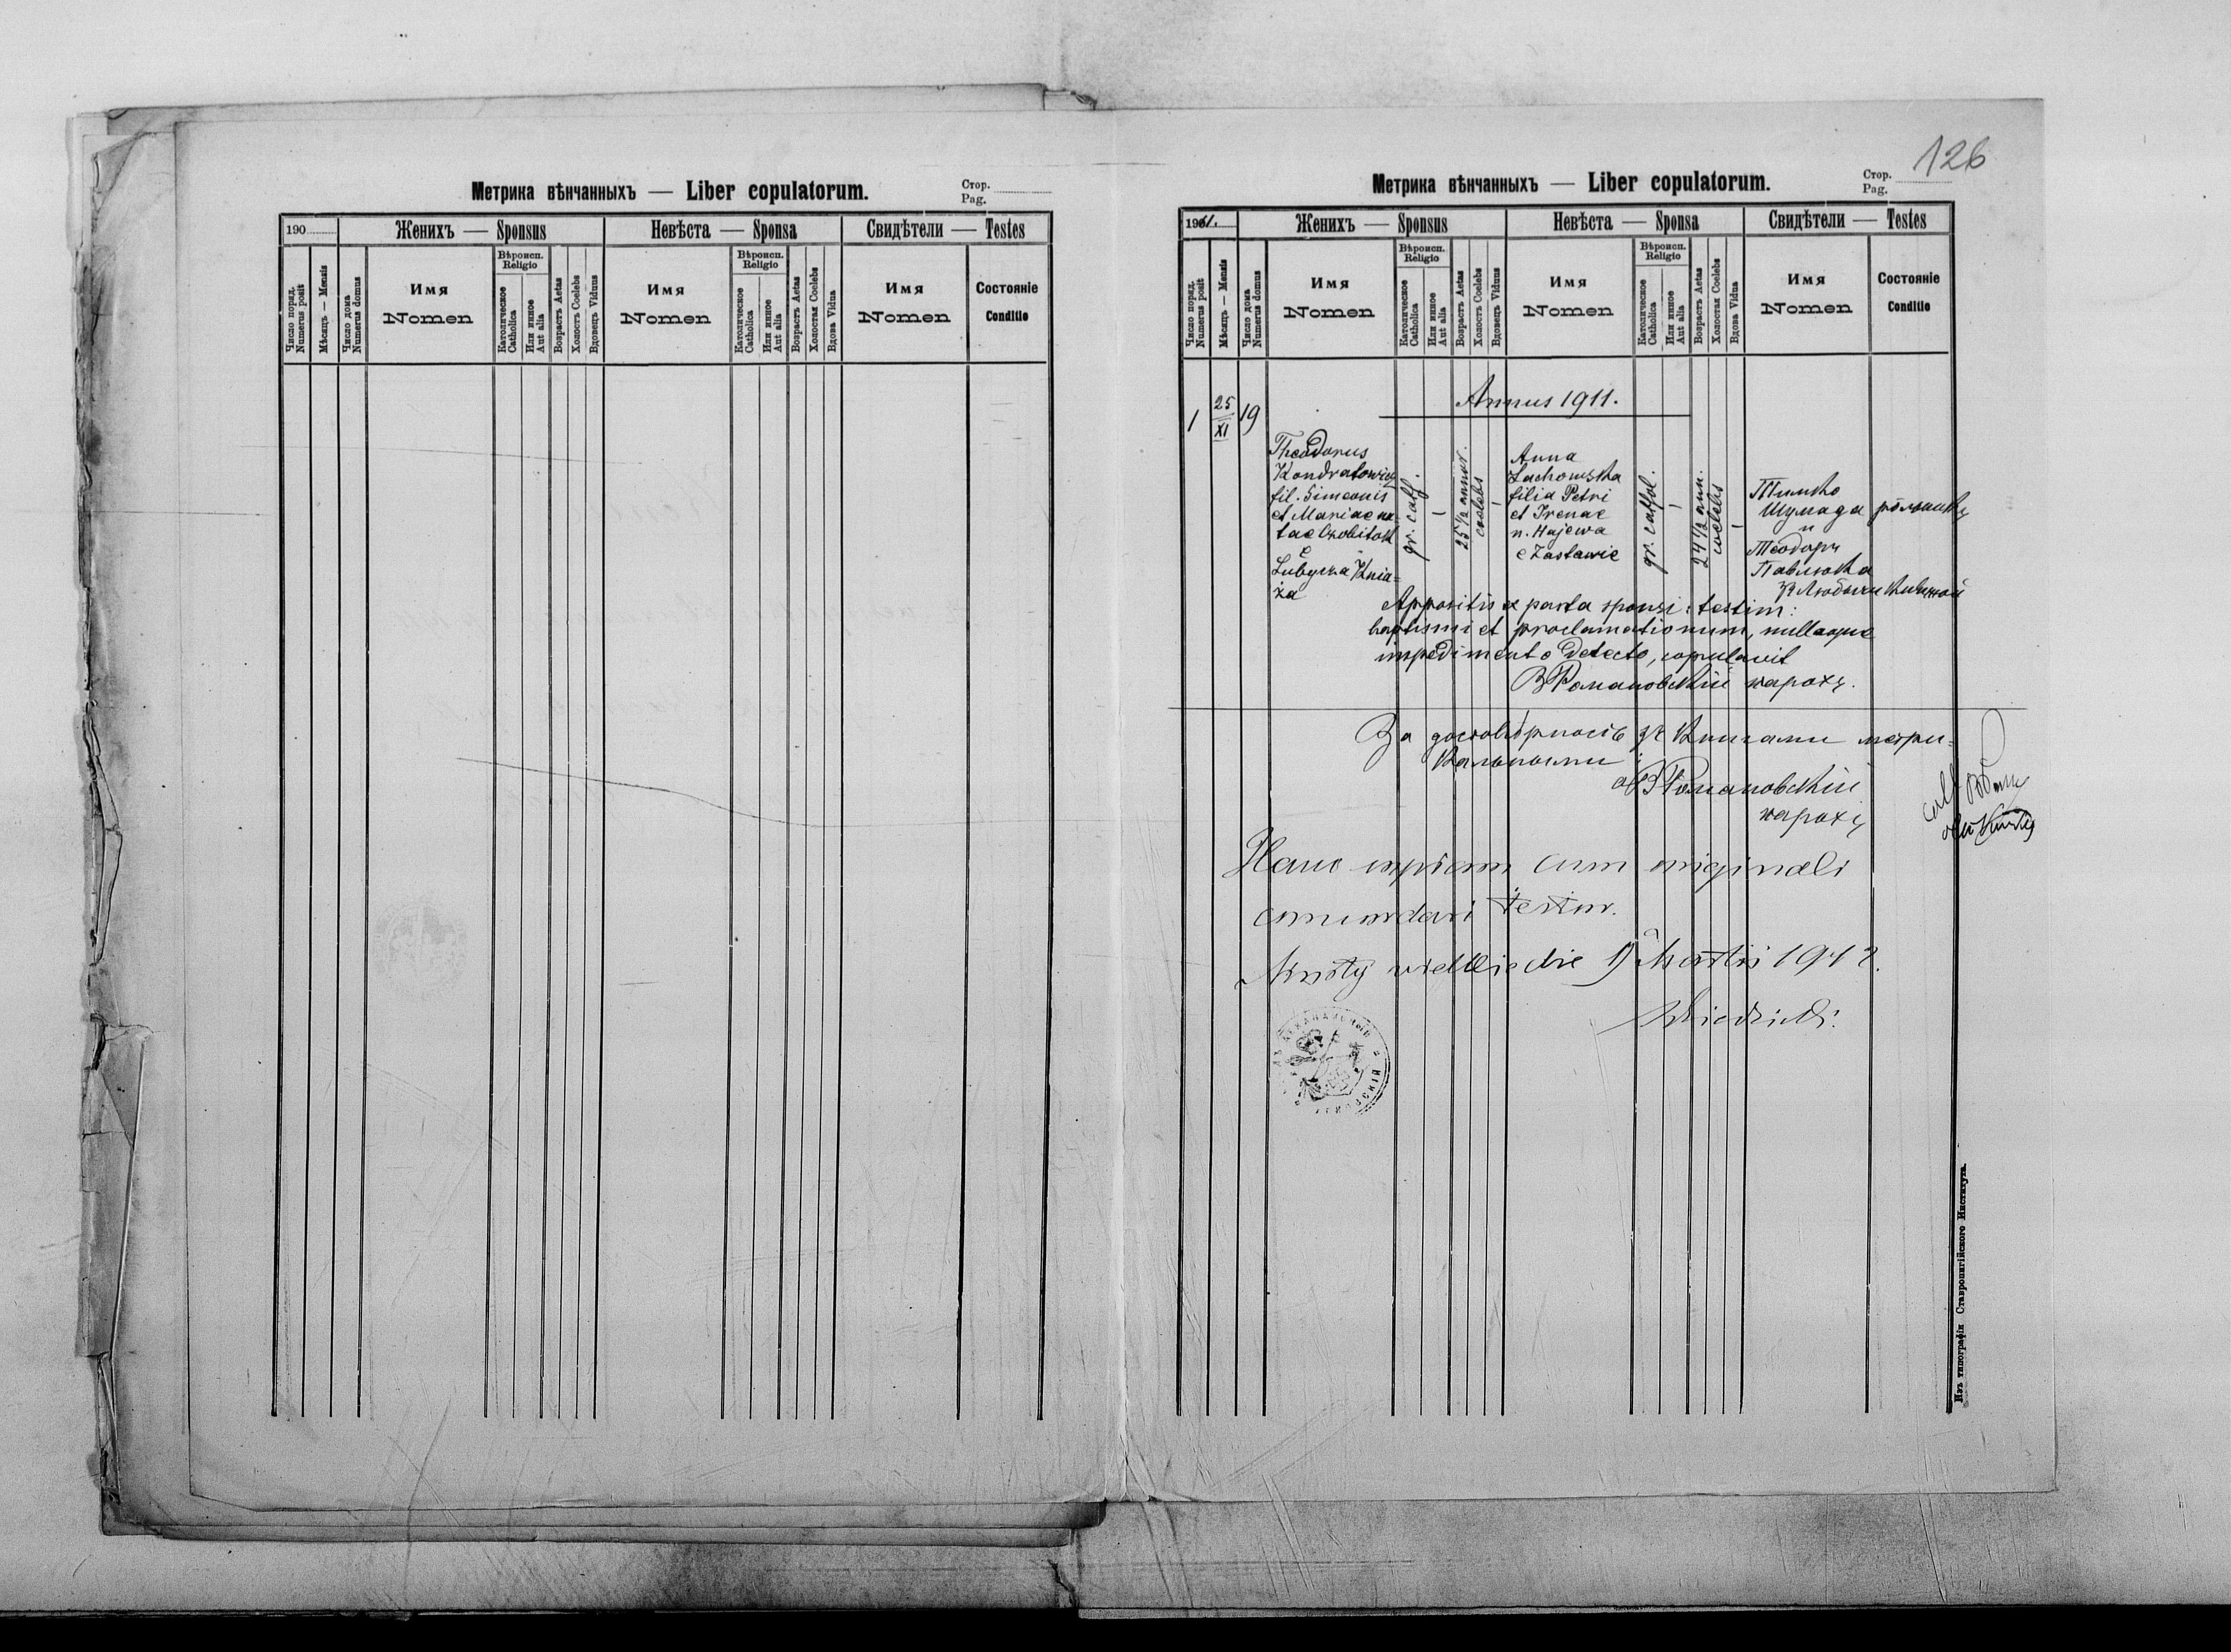 Метрика вѣнчанныхъ — Liber copulatorum.
Стор.
Pag.
190
Женихъ — Sponsus
Невѣста — Sponsa
Свидѣтели — Testes
Число поряд.
Numerus posit
Мѣсяцъ — Mensis
Число дома
Numerus domus
Имя
Nomen
Вѣроисп.
Religio
Католическое
Catholica
Или инное
Aut alia
Возрастъ Aetas
Холостъ Coelebs
Вдовецъ Viduus
Имя
Nomen
Вѣроисп.
Religio
Католическое
Catholica
Или инное
Aut alia
Возрастъ Aetas
Холостая Coelebs
Вдова Vidua
Имя
Nomen
Состояніе
Conditio
126
Метрика вѣнчанныхъ — Liber copulatorum.
Стор.
Pag.
1911.
Женихъ — Sponsus
Невѣста — Sponsa
Свидѣтели — Testes
Число поряд.
Numerus posit
Мѣсяцъ — Mensis
Число дома
Numerus domus
Имя
Nomen
Вѣроисп.
Religio
Католическое
Catholica
Или инное
Aut alia
Возрастъ Aetas
Холостъ Coelebs
Вдовецъ Viduus
Имя
Nomen
Вѣроисп.
Religio
Католическое
Catholica
Или инное
Aut alia
Возрастъ Aetas
Холостая Coelebs
Вдова Vidua
Имя
Nomen
Состояніе
Conditio
Annus 1911.
1
25
XI
19
Theodorus
Kondratowicz
fil. Simeonis
et Mariae na=
tae
e
Lubycza Knia=
ża
gr. cath.
25 1/2 annor.
coelebs
Anna
Lachowska
filia Petri
et Irenae
n. Hajewa
e Zastawie
gr. cathol.
24 1/2 ann.
coelebs
Тимко
Шумада рôльникъ
и
Теодоръ
Павлюка
зъ Любычи Княжой
Appositis ex parta sponsi: testim:
baptismi et proclamationum, nulloque
impedimento detecto, copulavit
ВРомановскій парохъ.
За достовѣрность зъ книгами метри=
кальными
о ВРомановскій
парохъ
Hanc copiam cum originali
concordari testor.
die 1) Martis 1912.
Изъ типографіи Ставропигійского Института.